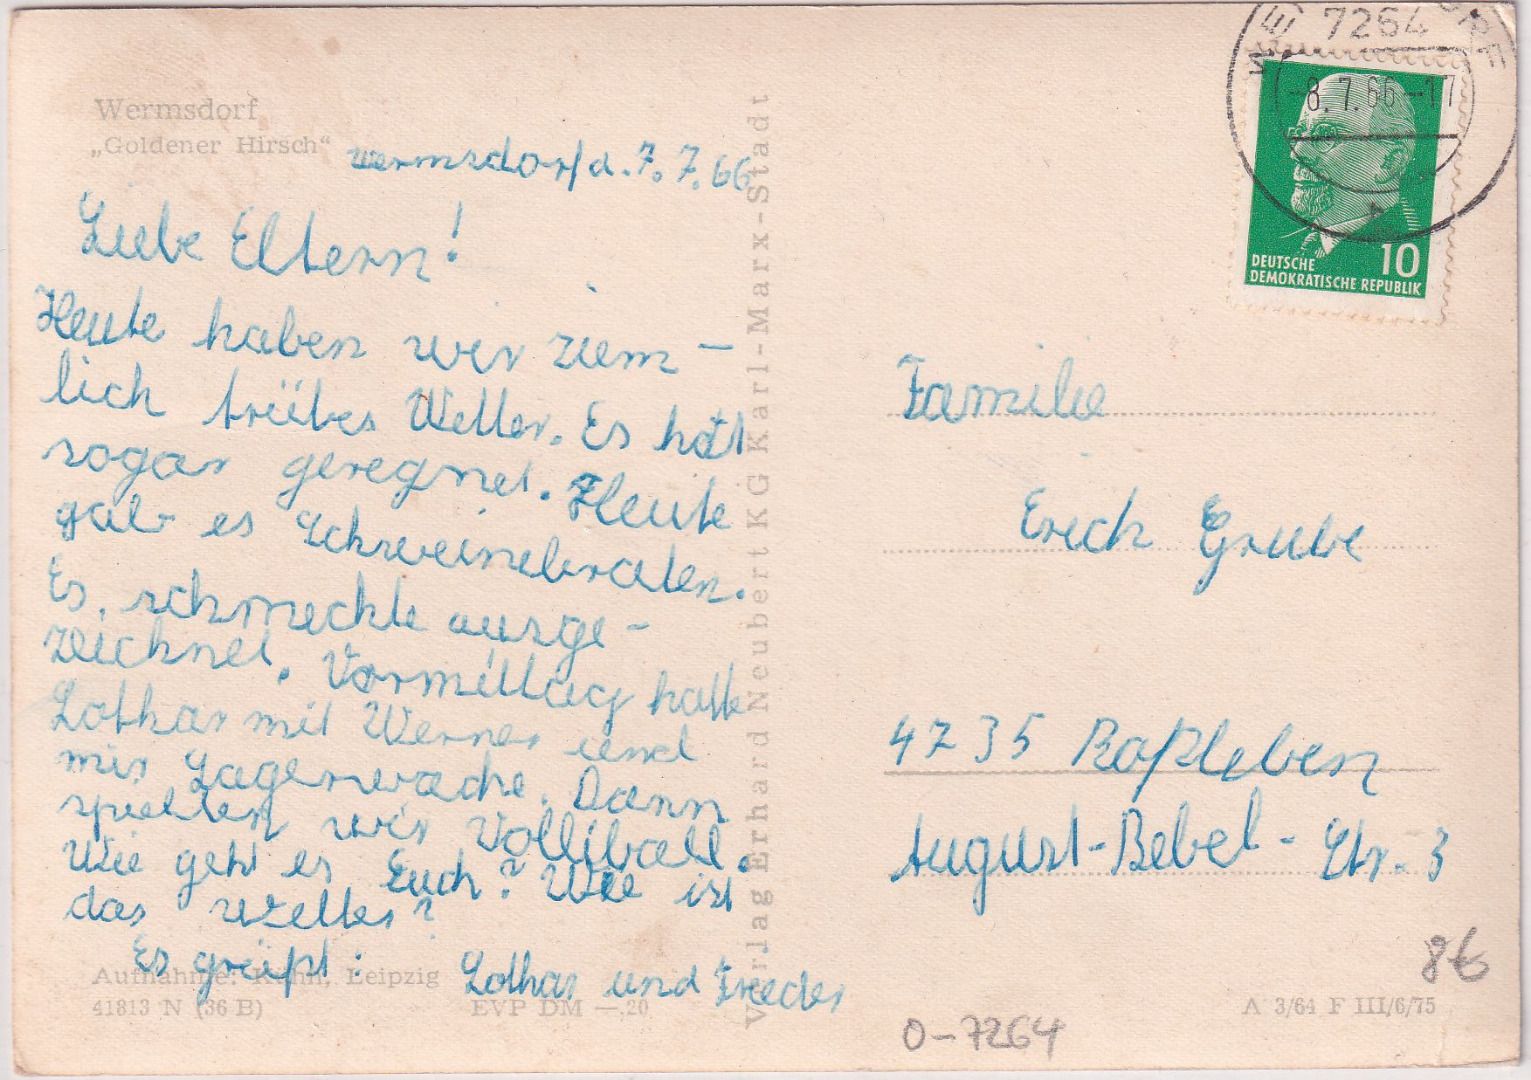 Wermsdorf
„Goldener Hirsch“
Wermsdorf d. 7. 7. 66
Liebe Eltern!
Heute haben wir ziem-
lich trübes Wetter. Es hat
sogar geregnet. Heute
gab es Schweinebraten.
Es schmeckte ausge-
zeichnet. Vormittag hatte
Lothar mit Werner und
mir Lagerwache. Dann
spielten wir Volliball.
Wie geht es Euch? Wie ist
das Wetter?
Es grüßt: Lothar und Frieder
Aufnahme: Kühn, Leipzig
41813 N (36 B) EVP DM —,20
Verlag Erhard Neubert KG Karl-Marx-Stadt
7264
-8.7.66-17
10
DEUTSCHE
DEMOKRATISCHE REPUBLIK
Familie
Erich Grube
4735 Roßleben
August-Bebel-Str. 3
8€
A 3/64 F III/6/75
O-7264